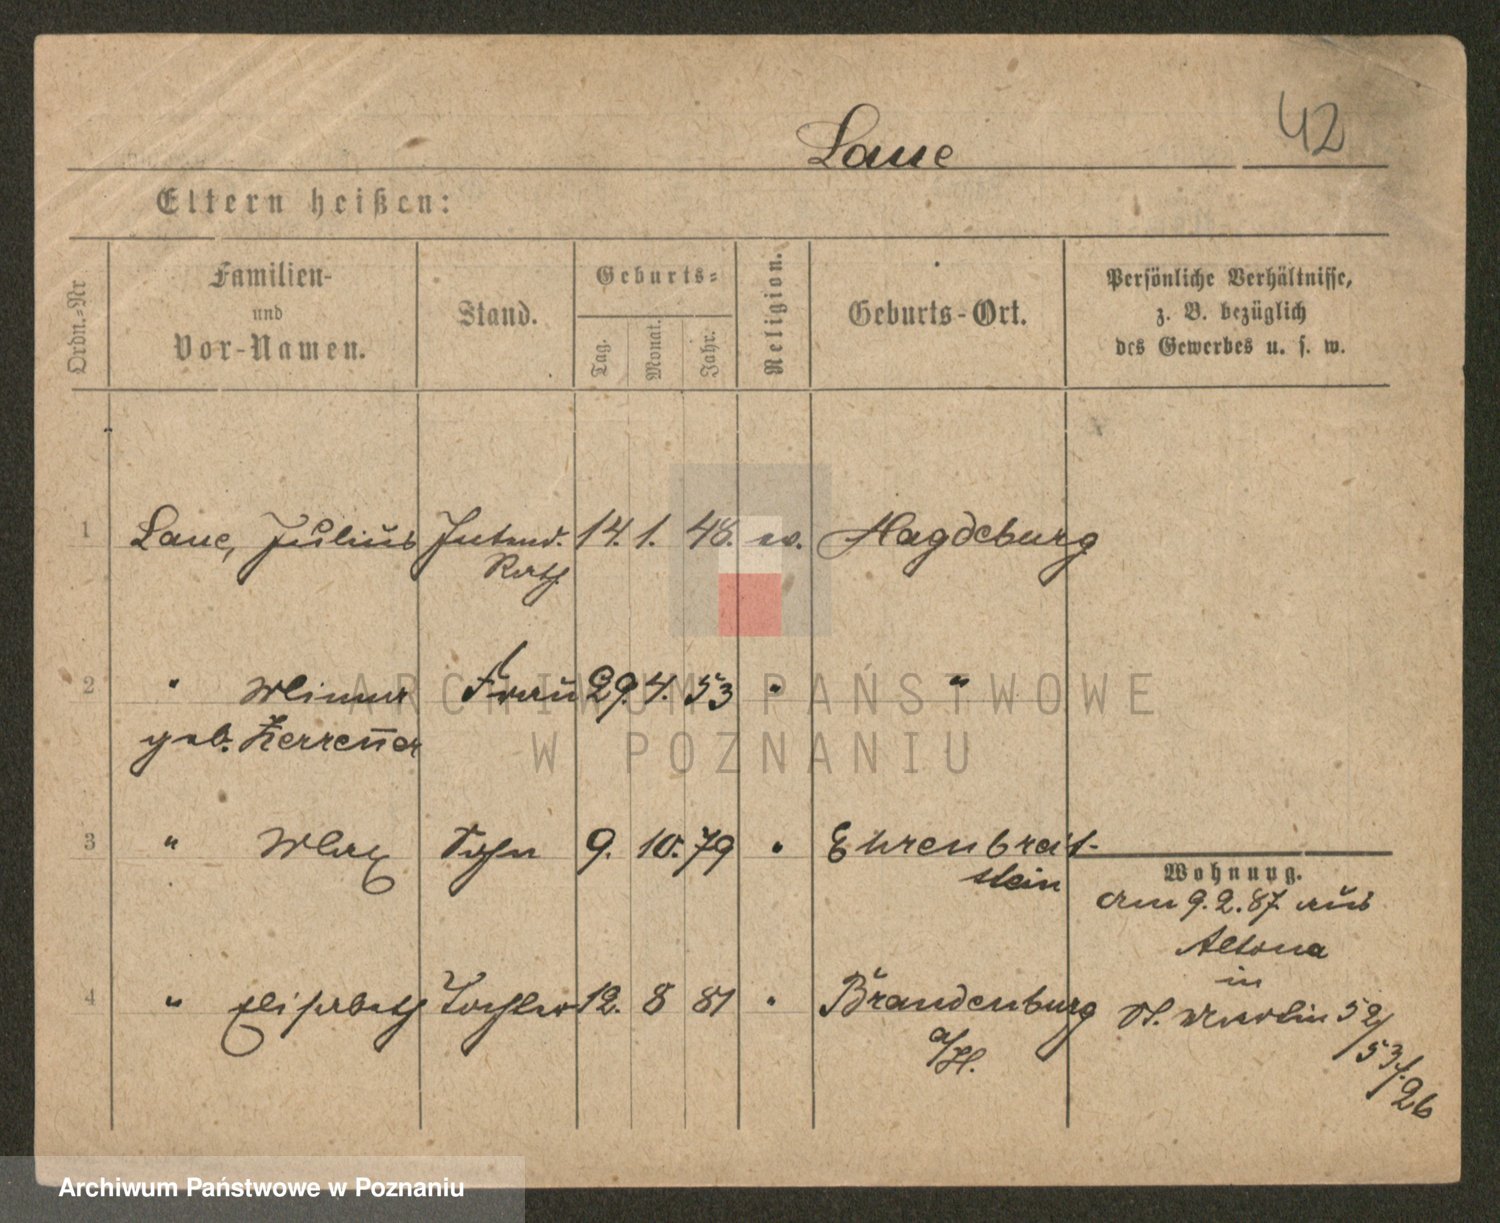 42
Laue
Eltern heißen:
Ordn.-Nr
Familien-
und
Vor-Namen.
Stand.
Geburts-
Tag.
Monat.
Jahr.
Religion.
Geburts-Ort.
Persönliche Verhältnisse,
z. B. bezüglich
des Gewerbes u. s. w.
1 Laue, Julius Intend. 14. 1. 48. ev. Magdeburg
Rath
2 " Frau 29. 4. 53 " "
geb.
3 " Max Sohn 9. 10. 79 " Ehrenbreit-
stein
Wohnung.
am 9. 2. 87 aus
Altona
in
4 " Elisabeth Tochter 12. 8 81 " Brandenburg
a/H.
St. Martin 52/
53/.26
ARCHIWUM PAŃSTWOWE
W POZNANIU
Archiwum Państwowe w Poznaniu